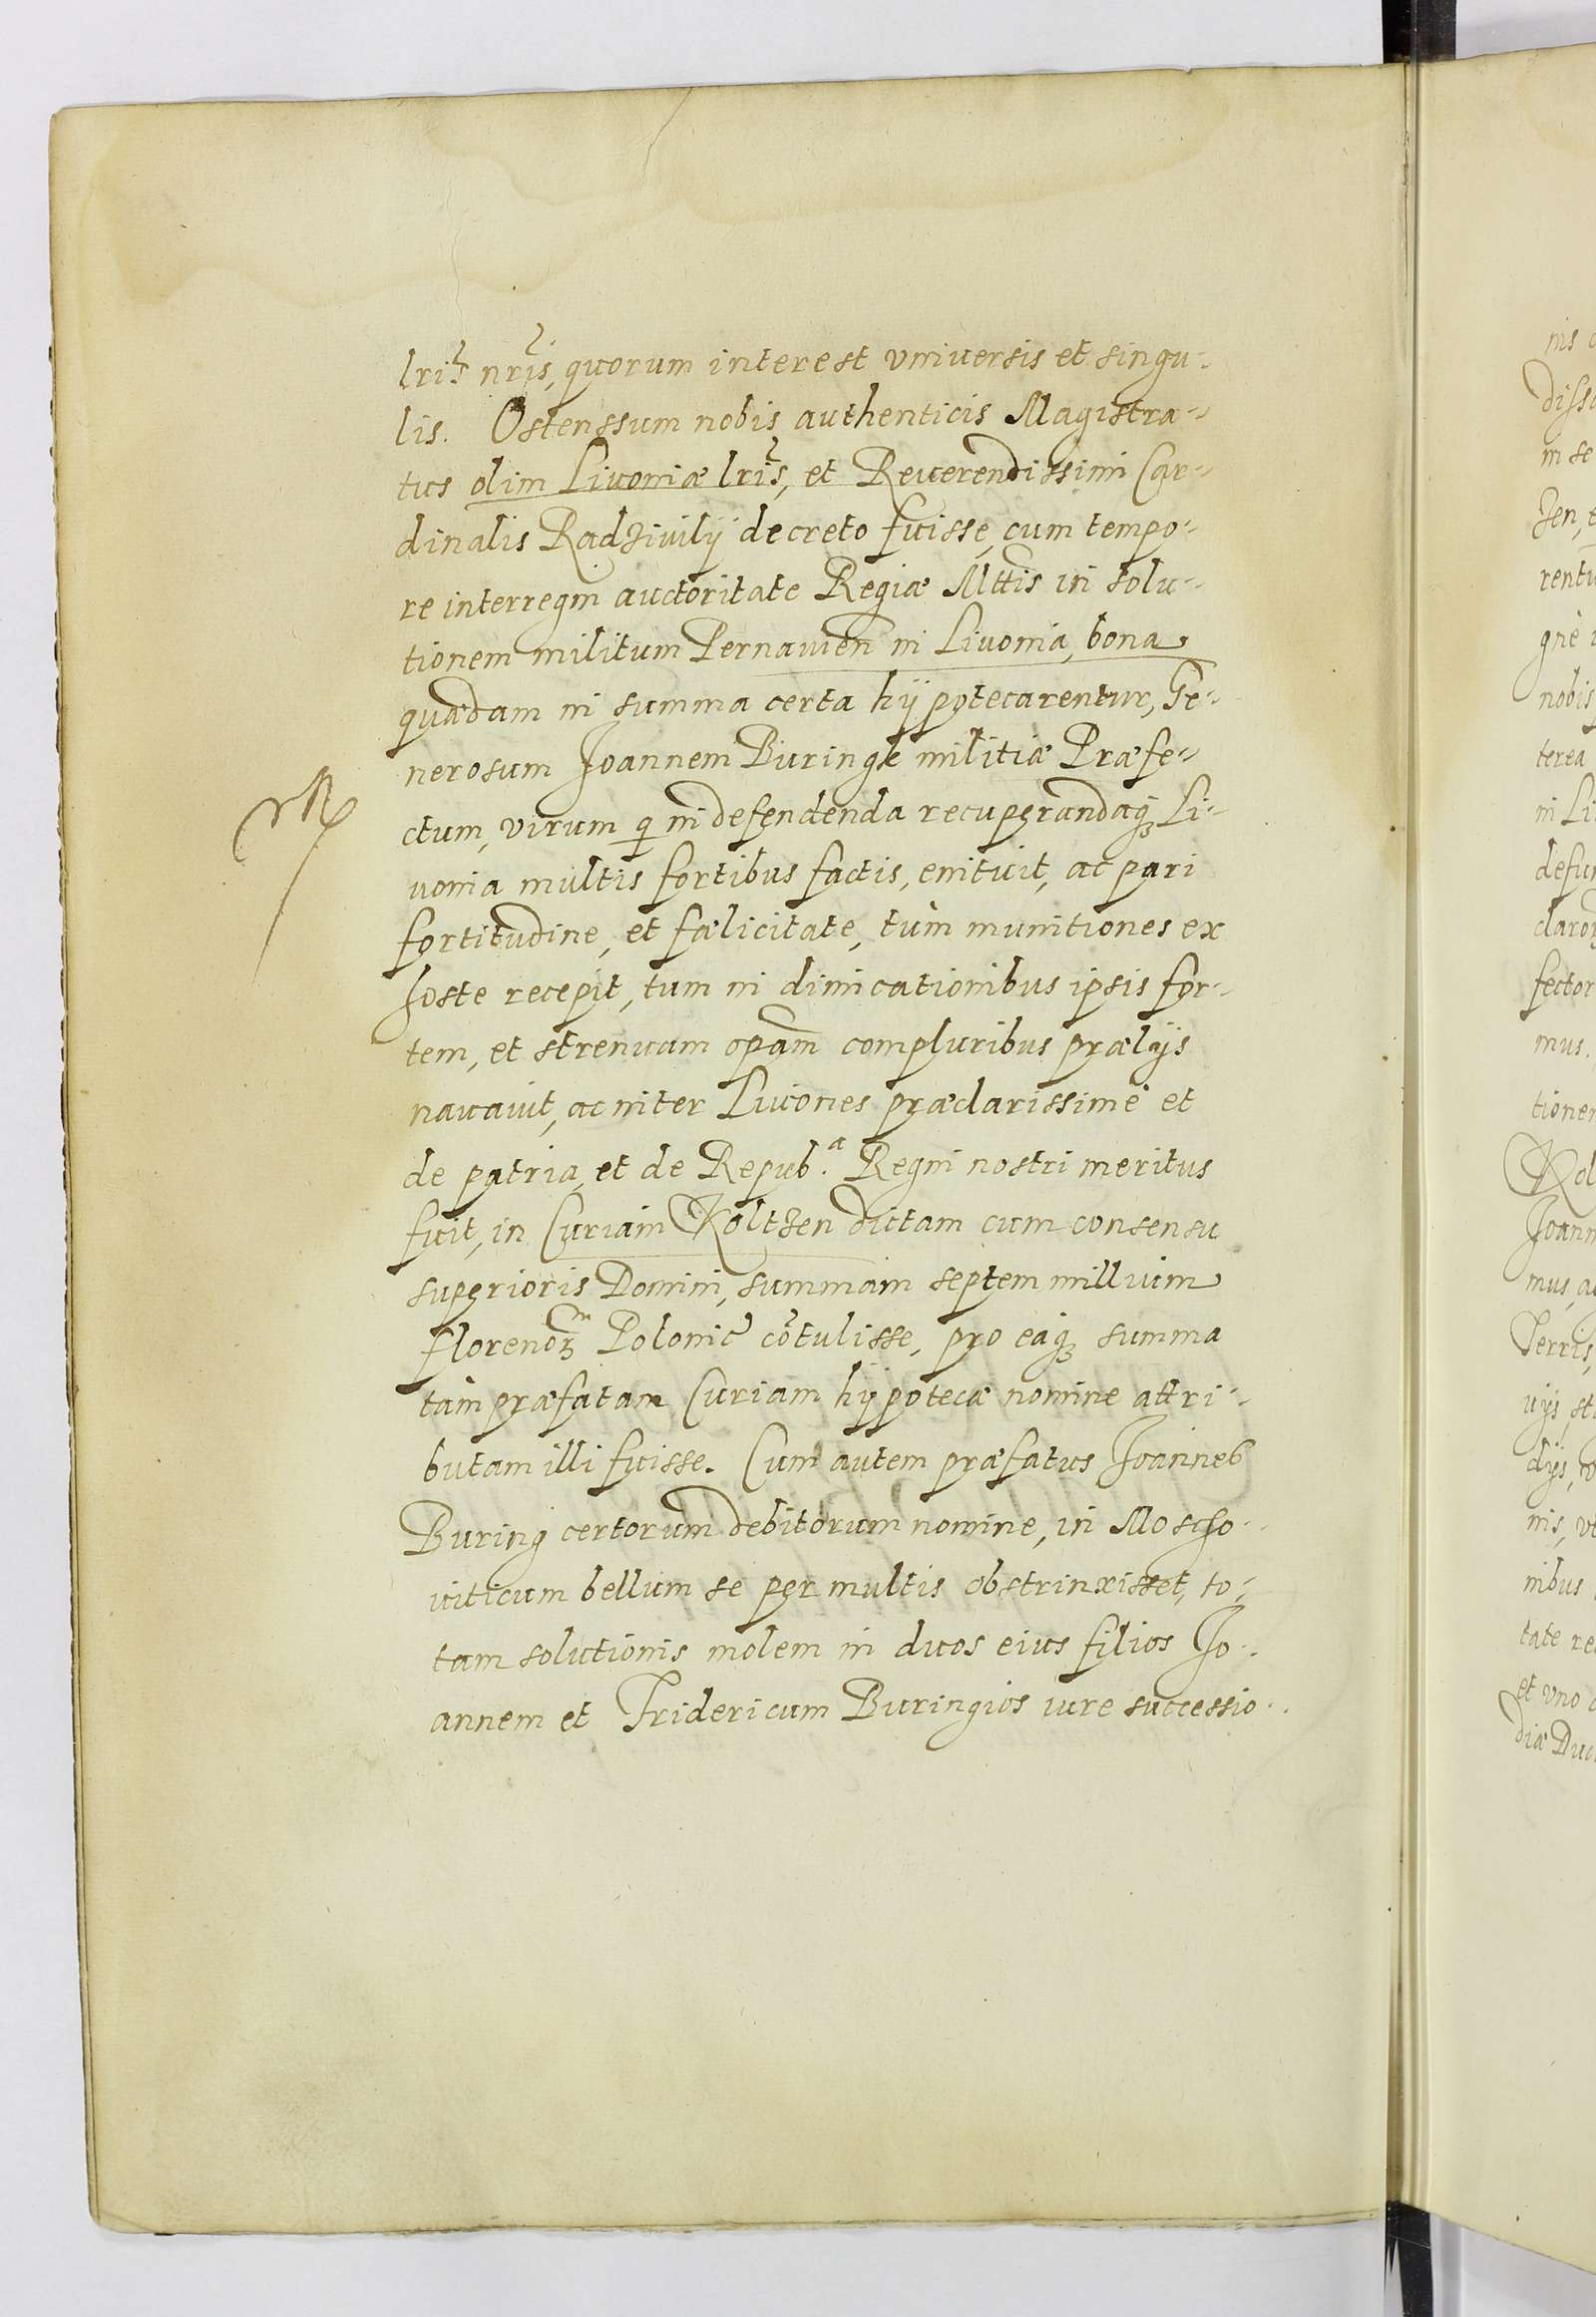 lris nris, quorum interest vniuersis et singu-
lis. Ostenssum nobis authenticis Magistra-
tus olim Liuoniæ lris, et Reuerendissimi Car-
dinalis Radziuilÿ decreto fuisse, cum tempo-
re interregni auctoritate Regiæ Mttis in solu-
tionem militum Pernauien in Liuonia, bona
quædam in summa certa hÿpotecarentur, Ge-
nerosum Joannem Buringk militiæ Præfe-
ctum, virum q in defendenda recuperandaq3 Li-
uonia multis fortibus factis, enituit, ac pari
fortitudine, et fælicitate, tùm munitiones ex
hoste recepit, tum in dimicationibus ipsis for-
tem, et strenuam opam compluribus prælÿs
nauauit, ac inter Liuones præclarissimè et
de patria, et de Repub.ᵃ Regni nostri meritus
fuit, in Curiam Koltzen dictam cum consensu
superioris Domini, summam septem millium
Florenoꝝ Polonic cōtulisse, pro eaq3 summa
tàm præfatam Curiam hÿpotecæ nomine attri-
butam illi fuisse. Cum autem præfatus Joannes
Buring certorum debitorum nomine, in Moscho-
uiticum bellum se per multis obstrinxisset, to-
tam solutionis molem in duos eius filios Jo-
annem et Fridericum Buringios iure successio-
nis
disso
in se
zen, e
rentu
gnè
nobis
terea
in Li
defun
claror
fector
mus.
tionem
Kol
Joann
mus, au
Terris,
uÿs, st
dÿs,
nis, vt
nibus
tate re
et vno
diæ Duc